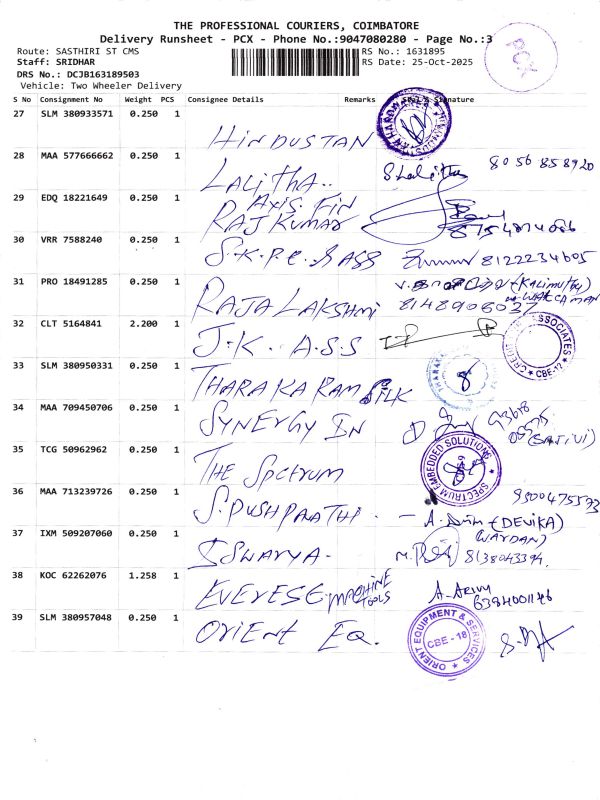 THE PROFESSIONAL COURIERS, COIMBATORE
Delivery Runsheet - PCX - Phone No.:9047080280 - Page No.:3
PCX
Route: SASTHIRI ST CMS
RS No.: 1631895
Staff: SRIDHAR
RS Date: 25-Oct-2025
DRS No.: DCJB163189503
Vehicle: Two Wheeler Delivery
S No Consignment No Weight PCS Consignee Details Remarks Signature
27 SLM 380933571 0.250 1
HINDUSTAN
28 MAA 577666662 0.250 1
LALITHA..
8056858920
29 EDQ 18221649 0.250 1
AXIS FIN
RAJ KUMAR
30 VRR 7588240 0.250 1
S.K.P.C. SASS
8122234605
31 PRO 18491285 0.250 1
RAJALAKSHMI
8148906037
32 CLT 5164841 2.200 1
J.K. A.S.S
ASSOCIATES
CBE-12
33 SLM 380950331 0.250 1
THARAKARAM SILK
34 MAA 709450706 0.250 1
SYNERGY IN
35 TCG 50962962 0.250 1
THE SPCTRUM
SPECTRUM EMBEDDED SOLUTIONS
36 MAA 713239726 0.250 1
S. PUSHPAATHI
9500475573
(DEVIKA)
37 IXM 509207060 0.250 1
ISWARYA.
8138043394
38 KOC 62262076 1.258 1
EVERESE MACHINE TOOLS
39 SLM 380957048 0.250 1
ORIENT EQ.
ORIENT EQUIPMENT & SERVICES
CBE - 18